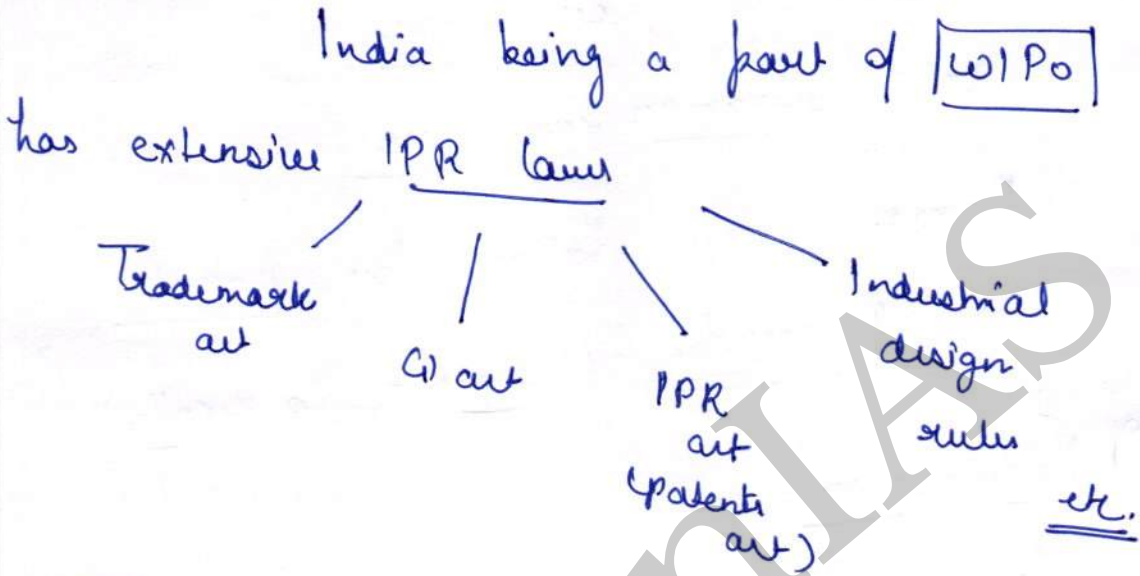 India being a part of WIPO
has extensive IPR laws
Trademark
act
GI act
IPR
act
(patents
act)
Industrial
design
rules
etc.
nIAS